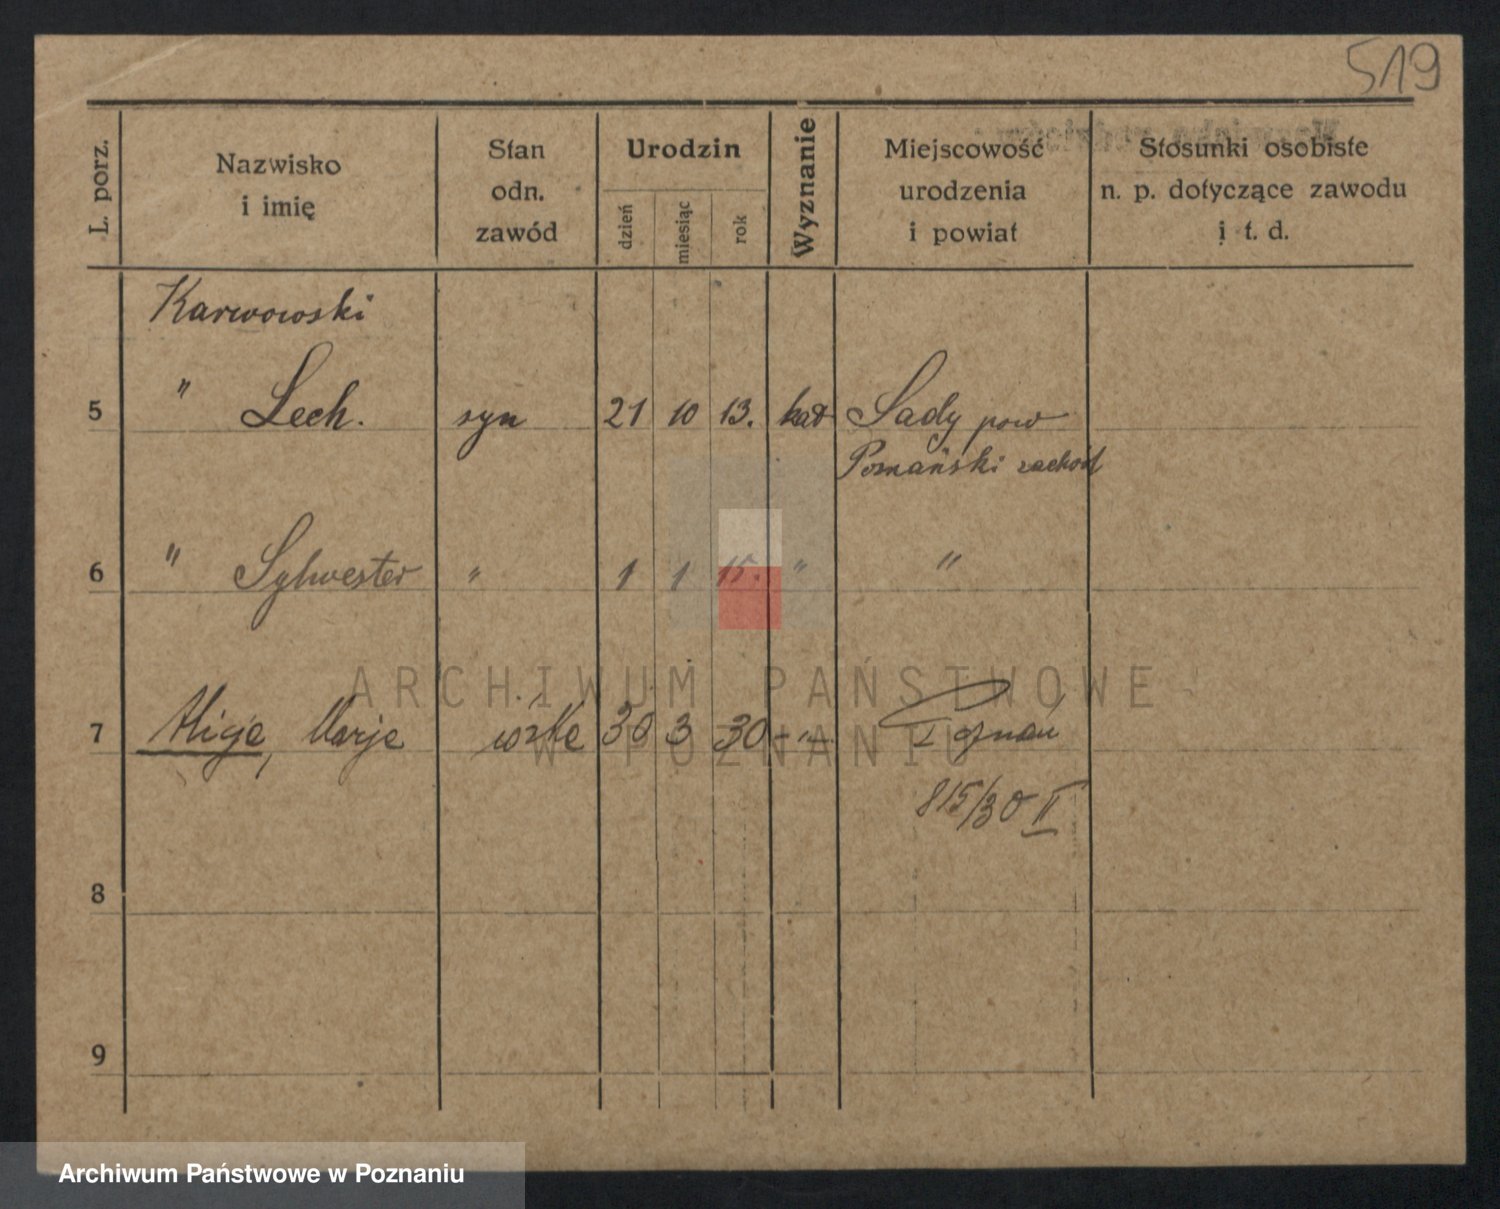 519
L. porz.
Nazwisko
i imię
Stan
odn.
zawód
Urodzin
dzień
miesiąc
rok
Wyznanie
Miejscowość
urodzenia
i powiat
Stosunki osobiste
n. p. dotyczące zawodu
i t. d.
Karwowski
5 " Lech. syn 21 10 13. kat Sady pow
Poznański zachod
6 " Sylwester " 1 1 15. " "
ARCHIWUM PAŃSTWOWE
W POZNANIU
7 Marja 30 3 30 -"- Poznań
815/30 II
8
9
Archiwum Państwowe w Poznaniu